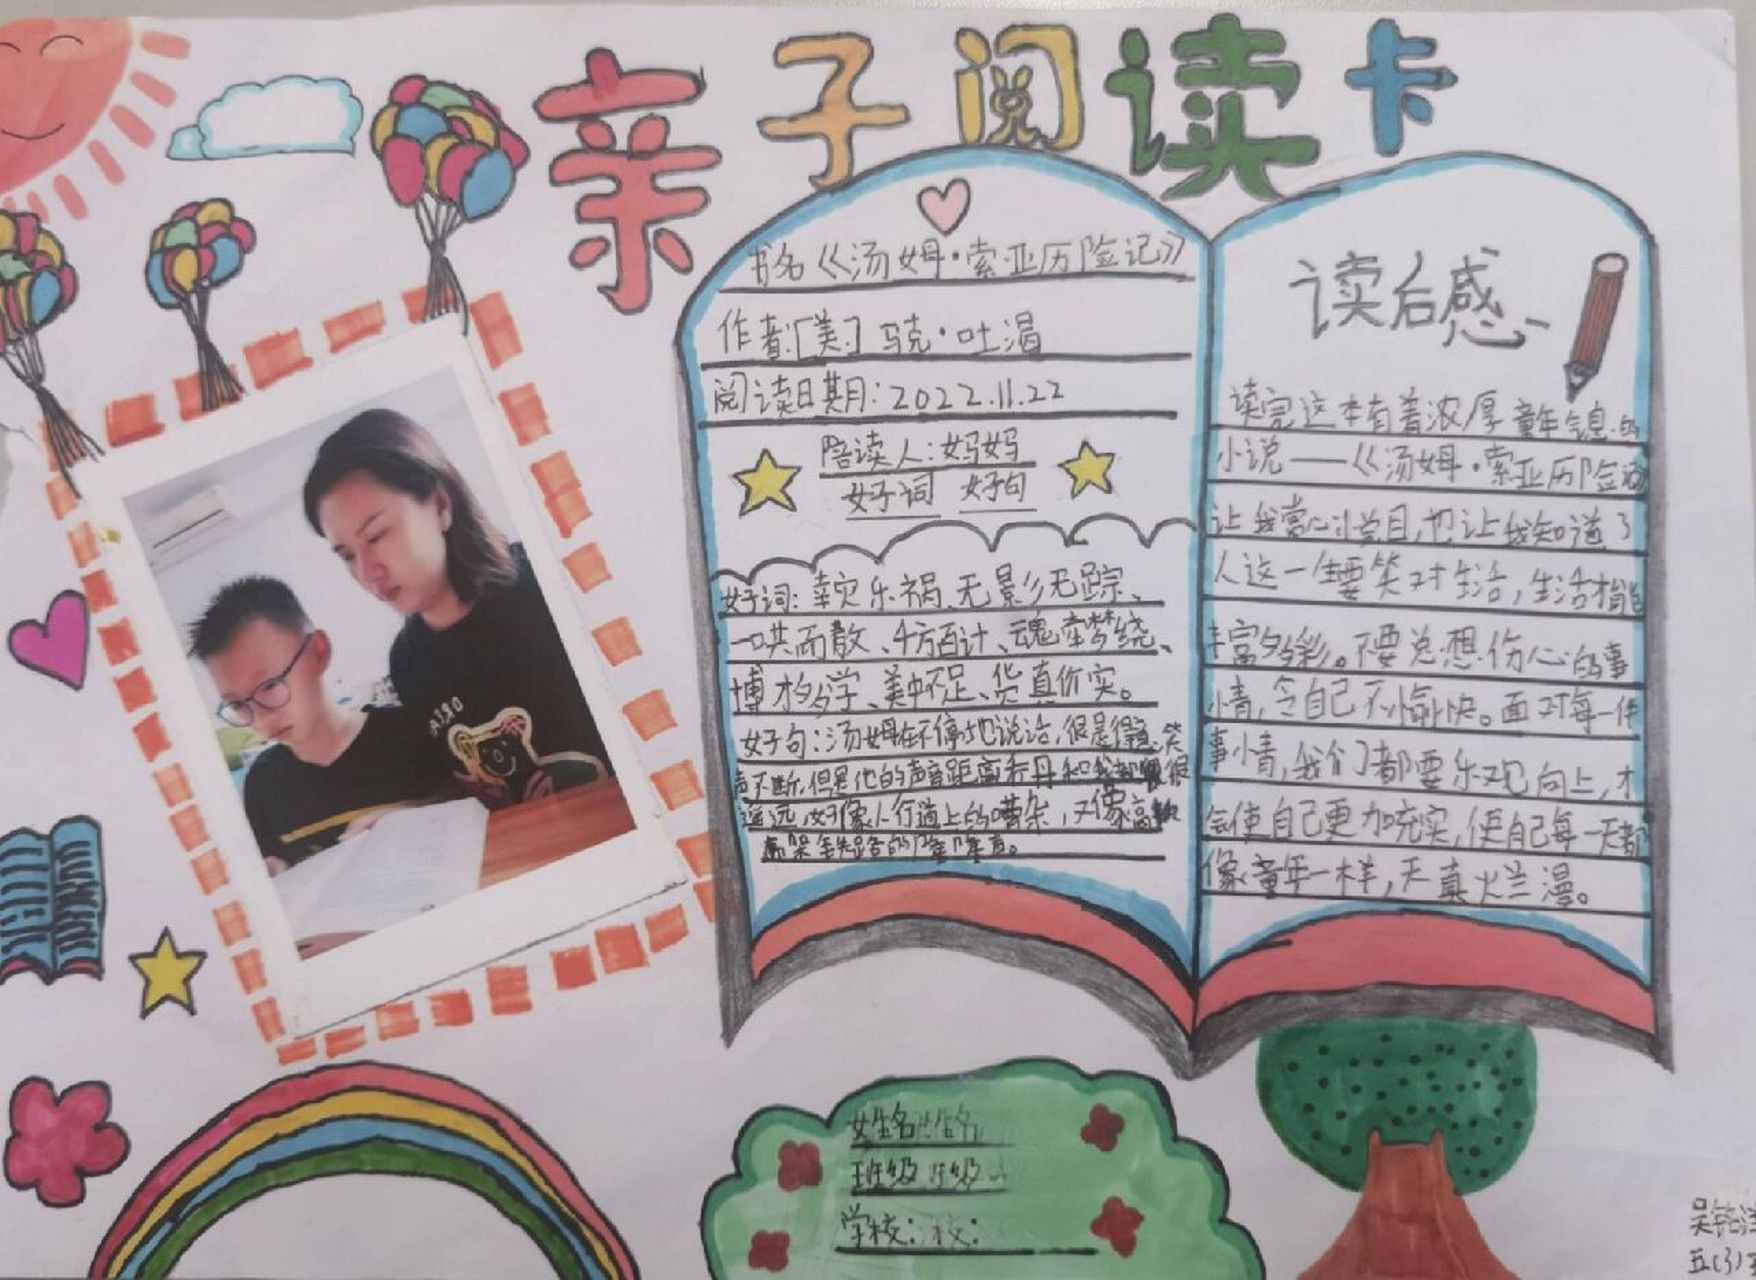 亲子阅读卡
书名《汤姆·索亚历险记》
作者:[美]马克·吐温
阅读日期:2022.11.22
陪读人:妈妈
好词 好句
好词:幸灾乐祸、无影无踪、
一哄而散、千方百计、魂牵梦绕、
博才多学、美中不足、货真价实。
好句:汤姆在不停地说话,很是得意,笑
声不断,但是他的声音距离乔丹和我都很
遥远,好像人行道上的嘈杂,又像高
高架铁路的隆隆声。
读后感
读完这本有着浓厚童年气息的
小说——《汤姆·索亚历险记
让我赏心悦目,也让我知道了
人这一生要笑对生活,生活才能
丰富多彩。不要总想伤心的事
情,令自己不愉快。面对每一件
事情,我们都要乐观向上,才
会使自己更加充实,使自己每一天都
像童年一样,天真烂漫。
姓名
班级
学校:
吴铭洋
五(3)